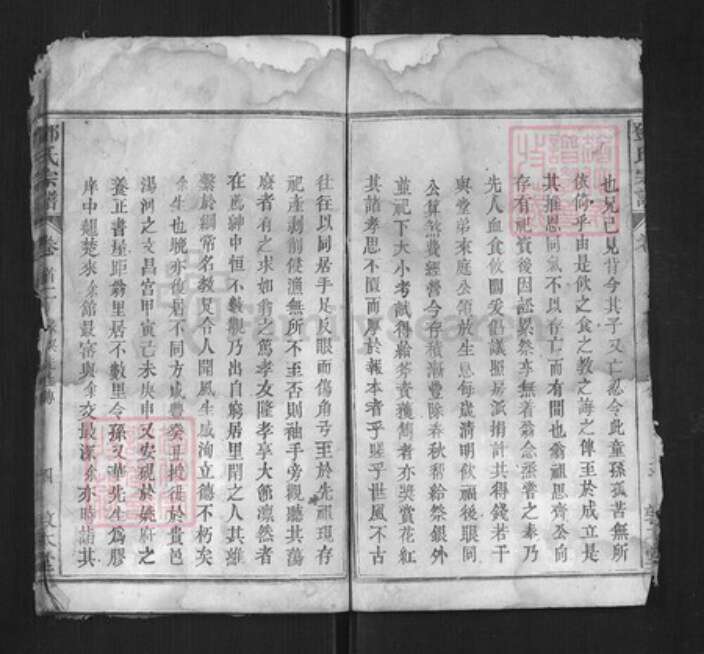 也兄已見背今其子又亡忍令此童孫孤苦無所
依倚乎由是飲之食之教之誨之俾至於成立是
其推思同氣不以存亡而有間也翁祖思齊公向
存有祀資後因訟累祭亭無着翁念烝嘗之奉乃
先人血食攸關爰倡議照房派捐計共得錢若干
與堂弟來庭公領放生息每歲清明飲福後眼同
公算花費經營今存積漸豐除春秋給祭銀外
並祀下大小考試得給券資獲雋者亦獎賞花紅
其諸孝思不匱而厚於報本者乎嗟乎世風不古
往往以同居手足反眼而傷角弓至於先祖現存
祀產剥削侵漁無所不至否則袖手旁觀聽其蕩
廢者有之求如翁之篤孝友隆孝享大節凛然者
在薦紳中恒不數觀乃出自窮居里閈之人其維
繫於綱常名教足令人聞風生感洵立德不朽矣
余生也晚亦復居不同方咸豐癸丑授徒於貴邑
湯河之文昌宮甲寅己未庚申又安硯於姚府之
養正書屋距翁里居不數里令孫又華先生為膠
庠中翹楚來余館最密與余交最深余亦時詣其
鄧氏宗譜
卷首二
四
敦本堂